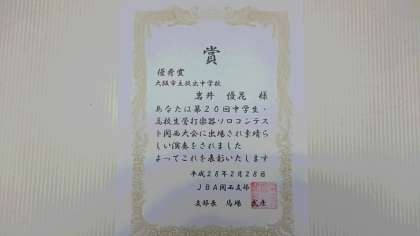 賞
優秀賞
大阪市立放出中学校
岩井 優花 様
あなたは第20回中学生・
高校生管打楽器ソロコンテス
ト関西大会に出場され素晴ら
しい演奏をされました
よってこれを表彰いたします
平成28年2月28日
JBA関西支部
支部長 馬場